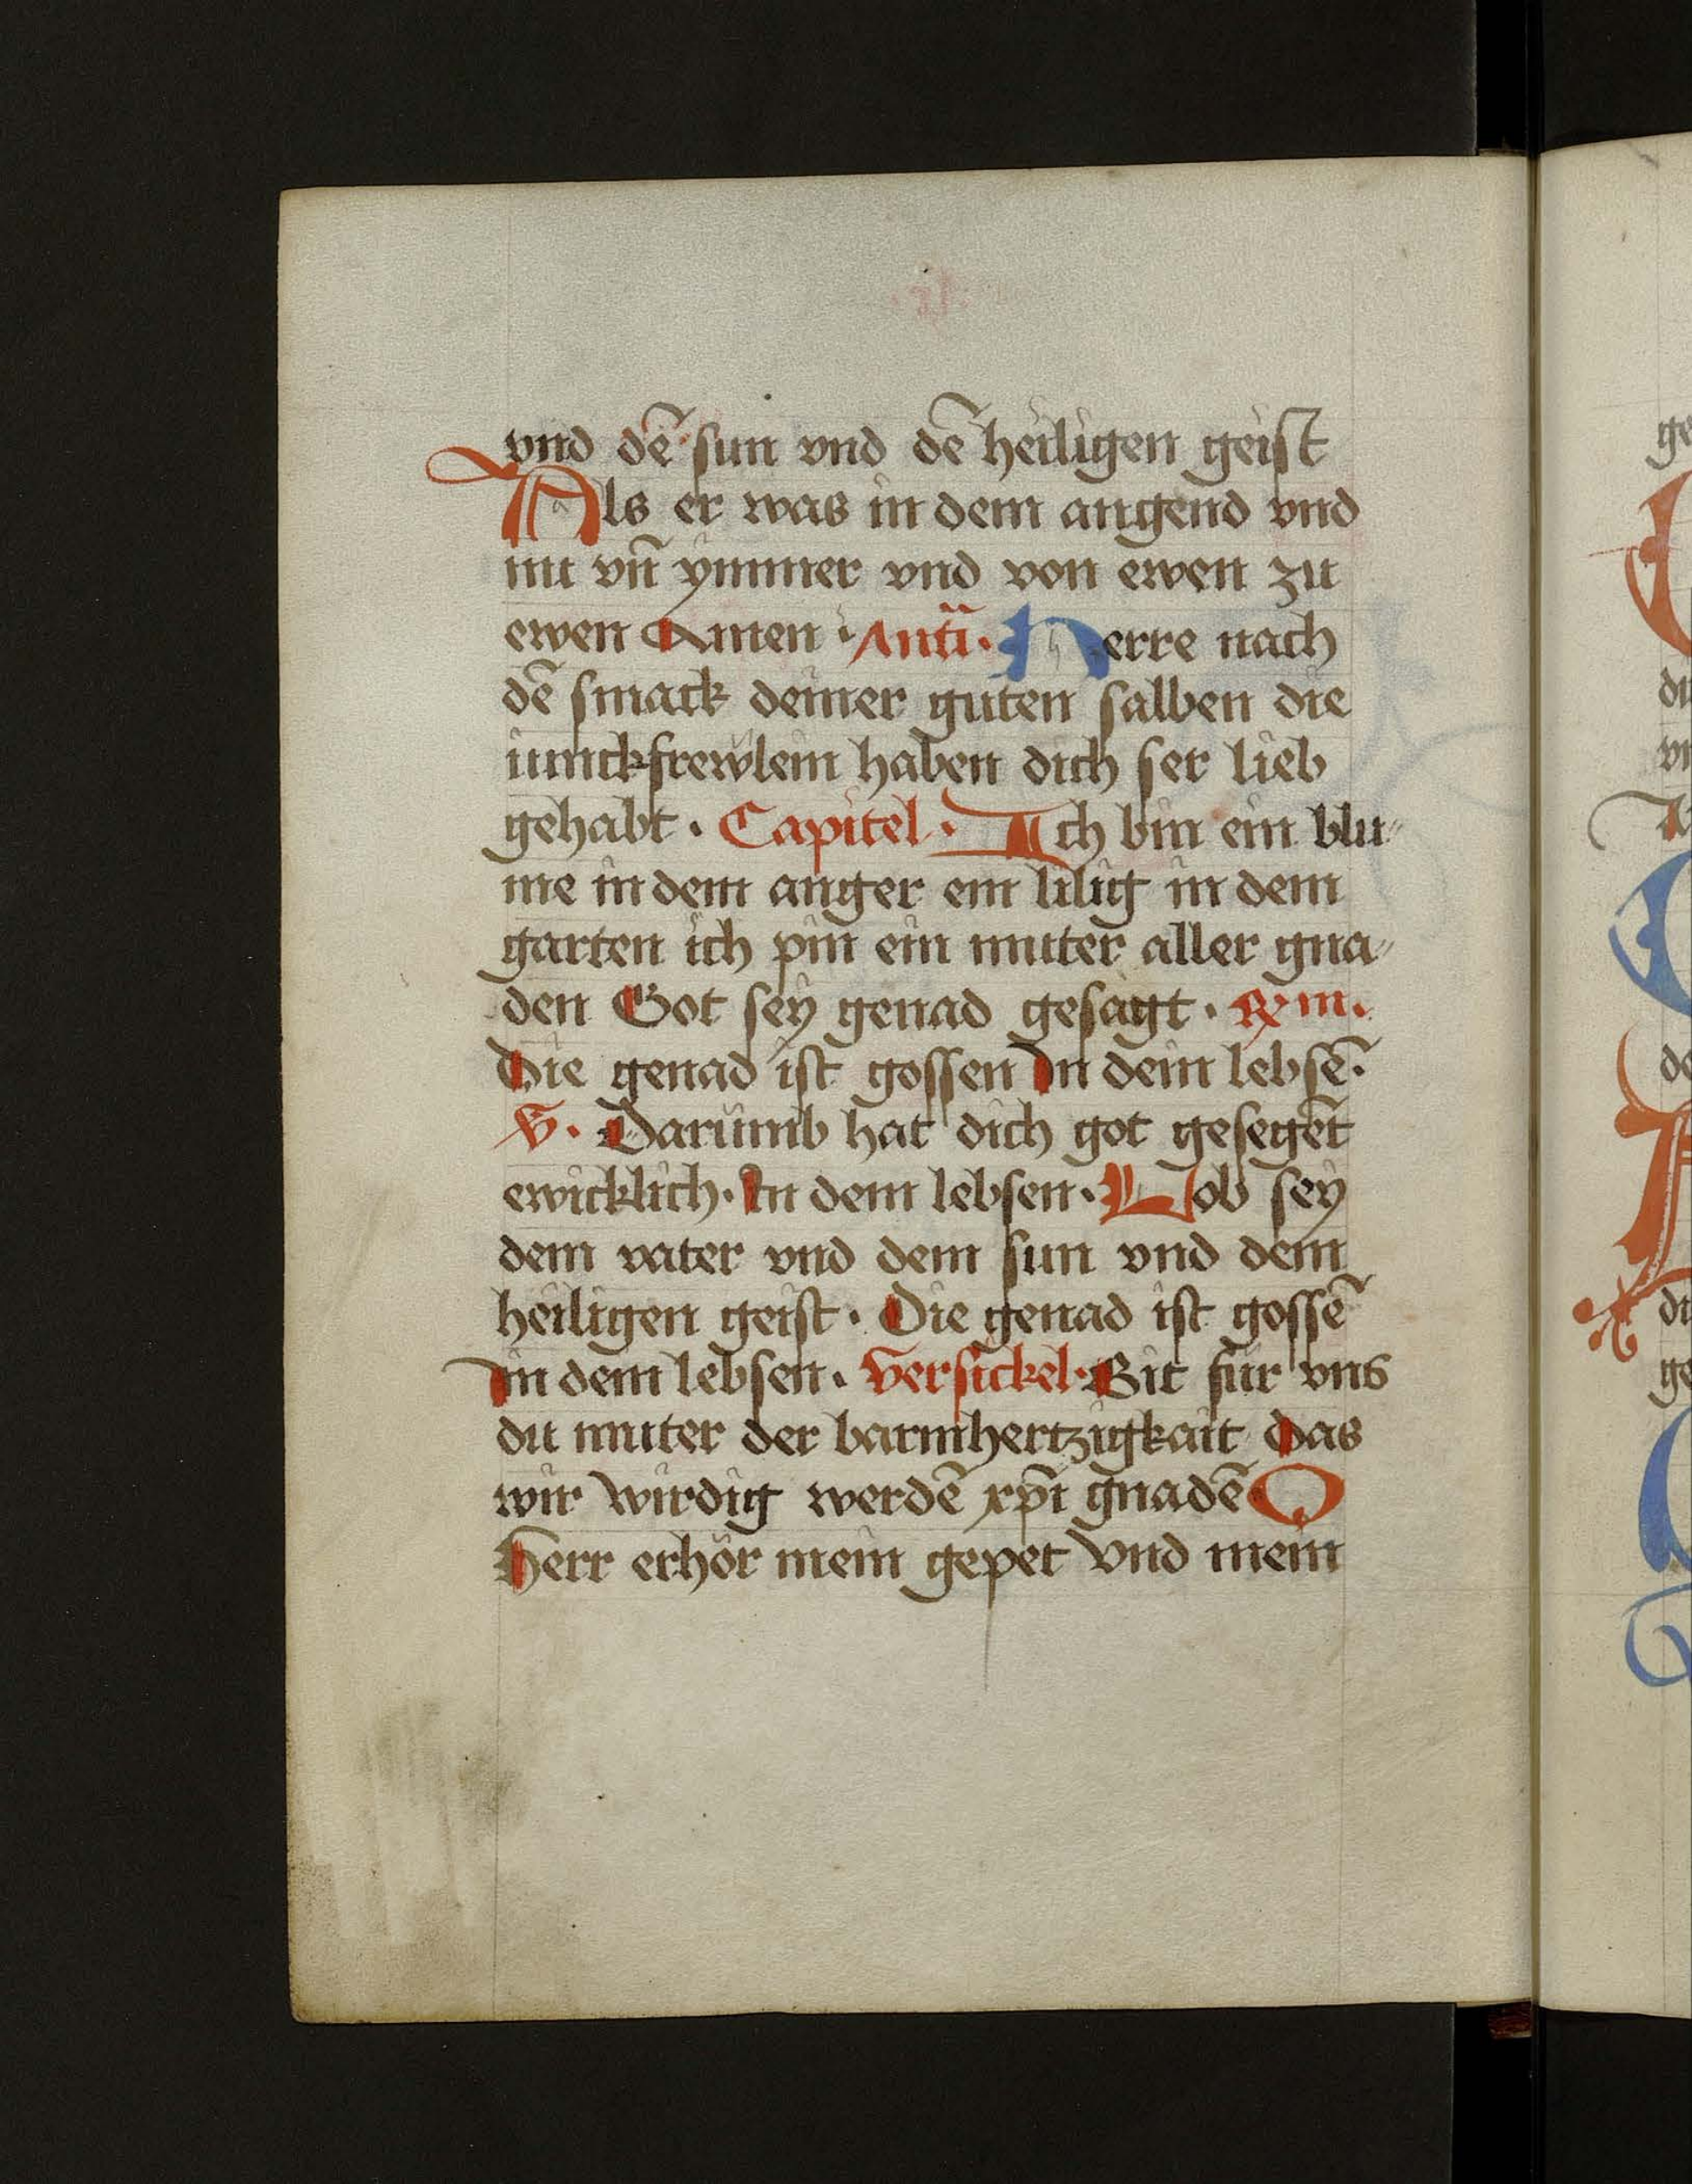 vnd dē sun vnd dē heiligen geist
Als er was in dem angend vnd
nu vn̄ ymmer vnd von ewen zu
ewen Amen · Anti͞a · Herre nach
dē smack deiner guten salben die
iunckfrewlein haben dich ser lieb
gehabt · Capitel · Ich bin ein blu⸗
me in dem anger ein lilig in dem
garten ich pin ein muter aller gna⸗
den Got sey genad gesagt · ℟m ·
Die genad ist gossen In dein lebsē ·
℣ · Darumb hat dich got gesegēt
ewicklich · In dem lebsen · Lob sey
dem vater vnd dem sun vnd dem
heiligen geist · Die genad ist gossē
In dem lebsen · Versickel · Bit für vns
du muter der barmhertzigkait Das
wir wirdig werdē xp̄i gnadē O
Herr erhör mein gepet Vnd mein